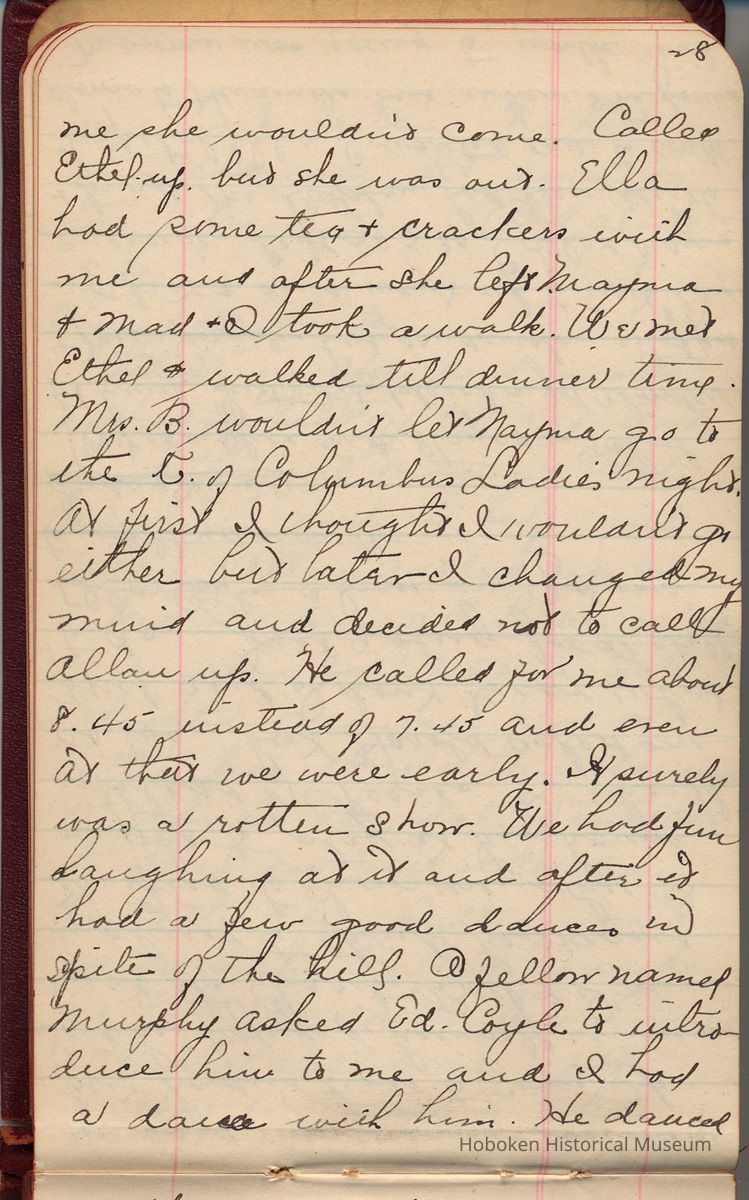 28
me she wouldn't come. Called
Ethel up. but she was out. Ella
had some tea + crackers with
me and after she left Mayma
+ Mad + I took a walk. We met
Ethel + walked till dinner time.
Mrs. B. wouldn't let Mayma go to
the K. of Columbus Ladies night.
At first I thought I wouldn't go
either but later I changed my
mind and decided not to call
Allan up. He called for me about
8.45 instead of 7.45 and even
at that we were early. It surely
was a rotten show. We had fun
laughing at it and after it
had a few good dances in
spite of the hill. A fellow named
Murphy asked Ed. Coyle to intro-
duce him to me and I had
a dance with him. He danced
Hoboken Historical Museum